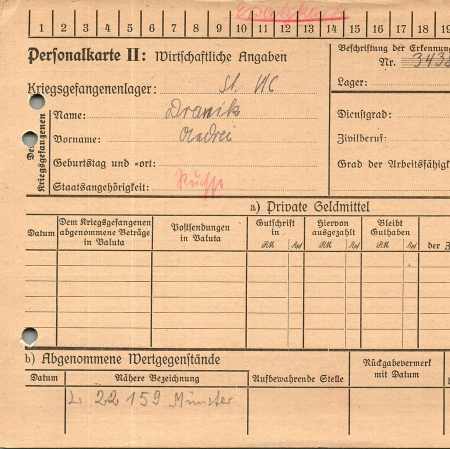 1 2 3 4 5 6 7 8 9 10 11 12 13 14 15 16 17 18 19
Personalkarte II: Wirtschaftliche Angaben
Beschriftung der Erkennun
Nr. 3438
Kriegsgefangenenlager:
Lager:
Des Kriegsgefangenen
Name: Dranik
Vorname: Andrei
Geburtstag und =ort:
Staatsangehörigkeit: Russe
Dienstgrad:
Zivilberuf:
Grad der Arbeitsfähigk
a) Private Geldmittel
Datum
Dem Kriegsgefangenen abgenommene Beträge in Valuta
Postsendungen in Valuta
Gutschrift in
Hiervon ausgezahlt
Bleibt Guthaben
RM Rpf RM Rpf RM Rpf
der Z
b) Abgenommene Wertgegenstände
Datum
Nähere Bezeichnung
Aufbewahrende Stelle
Rückgabevermerk mit Datum
22 159 Münster